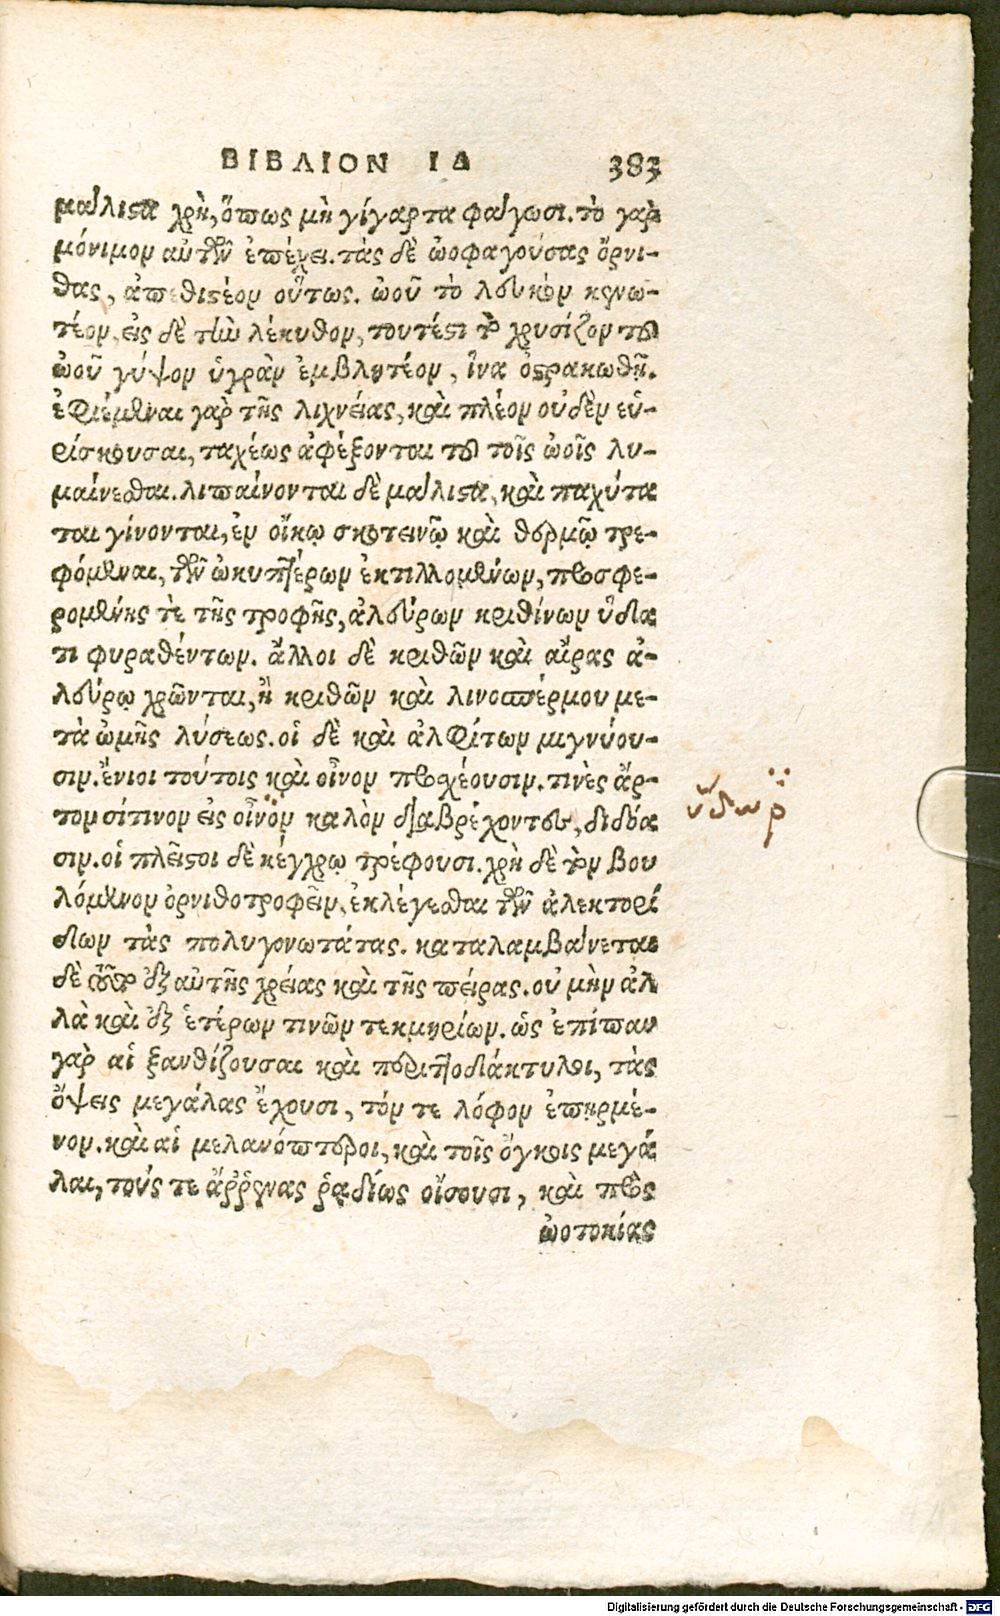 ΒΙΒΛΙΟΝ ΙΔ 383
μάλιστα χρὴ, ὅπως μὴ γίγαρτα φάγωσι. τὸ γὰρ
μόνιμον αὐτῶν ἐπέχει. τὰς δὲ ὠοφαγούσας ὄρνι-
θας, ἀπεθιστέον οὕτως. ὠοῦ τὸ λευκὸν κενω-
τέον, εἰς δὲ τὴν λέκυθον, τουτέστι τὸ χρυσίζον τοῦ
ὠοῦ γύψον ὑγρὰν ἐμβλητέον, ἵνα ὀστρακωθῇ.
ἐφιέμεναι γὰρ τῆς λιχνείας, καὶ πλέον οὐδὲν εὑ-
ρίσκουσαι, ταχέως ἀφέξονται τοῦ τοῖς ὠοῖς λυ-
μαίνεσθαι. λιπαίνονται δὲ μάλιστα, καὶ παχύτα
ται γίνονται, ἐν οἴκῳ σκοτεινῷ καὶ θερμῷ τρε-
φόμεναι, τῶν ὠκυπτέρων ἐκτιλλομένων, προσφε-
ρομένης τὲ τῆς τροφῆς, ἀλεύρων κριθίνων ὕδα
τι φυραθέντων. ἄλλοι δὲ κριθῶν καὶ αἴρας ἀ-
λεύρῳ χρῶνται, ἢ κριθῶν καὶ λινοσπέρμου με-
τὰ ὠμῆς λύσεως. οἱ δὲ καὶ ἀλφίτων μιγνύου-
σιν. ἔνιοι τούτοις καὶ οἶνον προσχέουσιν. τινὲς ἄρ-
τον σίτινον εἰς οἶνον καλὸν διαβρέχοντες, διδόα
σιν. οἱ πλεῖστοι δὲ κέγχρῳ τρέφουσι. χρὴ δὲ τὸν βου
λόμενον ὀρνιθοτροφεῖν, ἐκλέγεσθαι τῶν ἀλεκτορί
δων τὰς πολυγονωτάτας. καταλαμβάνεται
δὲ τοῦτο ἐξ αὐτῆς χρείας καὶ τῆς πείρας. οὐ μὴν ἀλ
λὰ καὶ ἐξ ἑτέρων τινῶν τεκμηρίων. ὡς ἐπίπαν
γὰρ αἱ ξανθίζουσαι καὶ περιττοδάκτυλοι, τὰς
ὄψεις μεγάλας ἔχουσι, τόν τε λόφον ἐπηρμέ-
νον. καὶ αἱ μελανόπτεροι, καὶ τοῖς ὄγκοις μεγά
λαι, τούς τε ἄῤῥενας ῥᾳδίως οἴσουσι, καὶ πρὸς
ὠοτοκίας
ὕδωρ
Digitalisierung gefördert durch die Deutsche Forschungsgemeinschaft - DFG